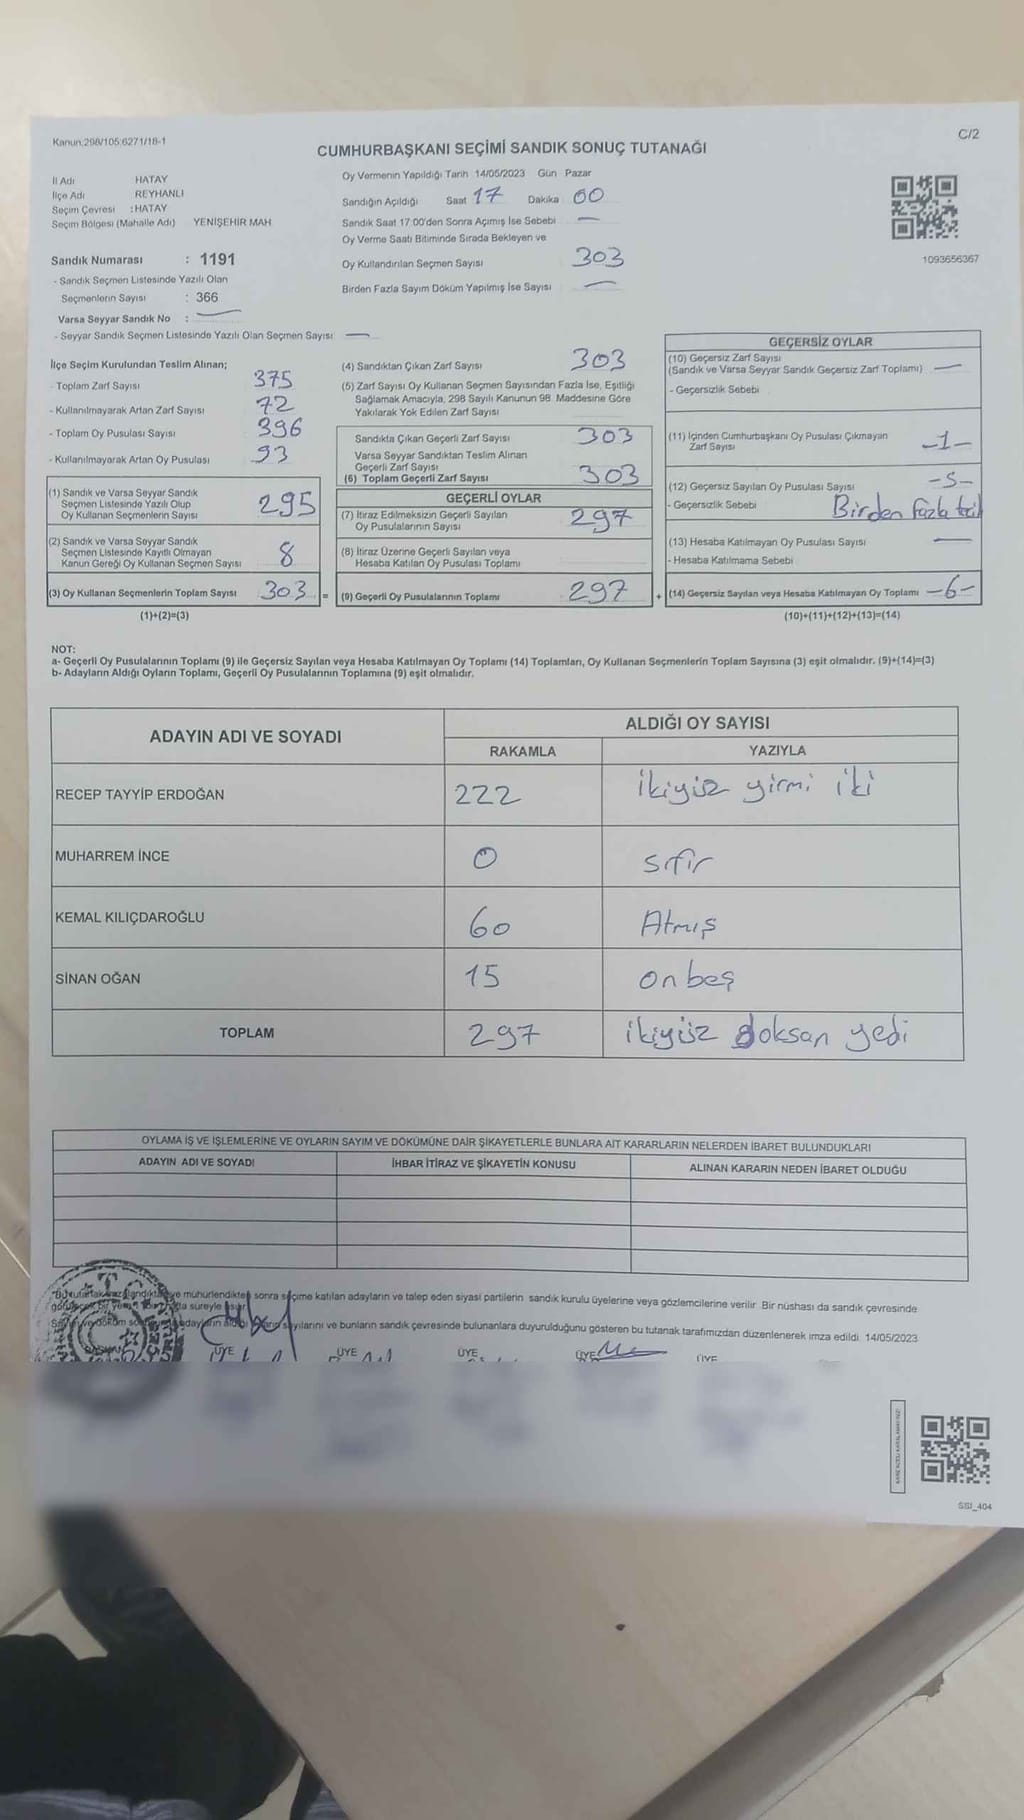 Kanun.298/105:6271/18-1
C/2
CUMHURBAŞKANI SEÇİMİ SANDIK SONUÇ TUTANAĞI
İl Adı HATAY
İlçe Adı REYHANLI
Seçim Çevresi :HATAY
Seçim Bölgesi (Mahalle Adı) YENİŞEHİR MAH
Sandık Numarası : 1191
- Sandık Seçmen Listesinde Yazılı Olan
Seçmenlerin Sayısı : 366
Varsa Seyyar Sandık No : —
- Seyyar Sandık Seçmen Listesinde Yazılı Olan Seçmen Sayısı —
Oy Vermenin Yapıldığı Tarih 14/05/2023 Gün Pazar
Sandığın Açıldığı Saat 17 Dakika 00
Sandık Saat 17:00'den Sonra Açımış İse Sebebi —
Oy Verme Saati Bitiminde Sırada Bekleyen ve
Oy Kullandırılan Seçmen Sayısı 303
Birden Fazla Sayım Döküm Yapılmış İse Sayısı —
1093656367
İlçe Seçim Kurulundan Teslim Alınan;
- Toplam Zarf Sayısı 375
- Kullanılmayarak Artan Zarf Sayısı 72
- Toplam Oy Pusulası Sayısı 396
- Kullanılmayarak Artan Oy Pusulası 93
(1) Sandık ve Varsa Seyyar Sandık
Seçmen Listesinde Yazılı Olup
Oy Kullanan Seçmenlerin Sayısı 295
(2) Sandık ve Varsa Seyyar Sandık
Seçmen Listesinde Kayıtlı Olmayan
Kanun Gereği Oy Kullanan Seçmen Sayısı 8
(3) Oy Kullanan Seçmenlerin Toplam Sayısı 303 =
(1)+(2)=(3)
(4) Sandıktan Çıkan Zarf Sayısı 303
(5) Zarf Sayısı Oy Kullanan Seçmen Sayısından Fazla İse, Eşitliği
Sağlamak Amacıyla, 298 Sayılı Kanunun 98. Maddesine Göre
Yakılarak Yok Edilen Zarf Sayısı
Sandıkta Çıkan Geçerli Zarf Sayısı 303
Varsa Seyyar Sandıktan Teslim Alınan
Geçerli Zarf Sayısı
(6) Toplam Geçerli Zarf Sayısı 303
GEÇERLİ OYLAR
(7) İtiraz Edilmeksizin Geçerli Sayılan
Oy Pusulalarının Sayısı 297
(8) İtiraz Üzerine Geçerli Sayılan veya
Hesaba Katılan Oy Pusulası Toplamı
(9) Geçerli Oy Pusulalarının Toplamı 297 +
GEÇERSİZ OYLAR
(10) Geçersiz Zarf Sayısı
(Sandık ve Varsa Seyyar Sandık Geçersiz Zarf Toplamı) —
- Geçersizlik Sebebi
(11) İçinden Cumhurbaşkanı Oy Pusulası Çıkmayan
Zarf Sayısı -1-
(12) Geçersiz Sayılan Oy Pusulası Sayısı -5-
- Geçersizlik Sebebi Birden fazla
(13) Hesaba Katılmayan Oy Pusulası Sayısı —
- Hesaba Katılmama Sebebi
(14) Geçersiz Sayılan veya Hesaba Katılmayan Oy Toplamı -6-
(10)+(11)+(12)+(13)=(14)
NOT:
a- Geçerli Oy Pusulalarının Toplamı (9) ile Geçersiz Sayılan veya Hesaba Katılmayan Oy Toplamı (14) Toplamları, Oy Kullanan Seçmenlerin Toplam Sayısına (3) eşit olmalıdır. (9)+(14)=(3)
b- Adayların Aldığı Oyların Toplamı, Geçerli Oy Pusulalarının Toplamına (9) eşit olmalıdır.
ADAYIN ADI VE SOYADI ALDIĞI OY SAYISI
RAKAMLA YAZIYLA
RECEP TAYYİP ERDOĞAN 222 ikiyüz yirmi iki
MUHARREM İNCE 0 sıfır
KEMAL KILIÇDAROĞLU 60 Atmış
SİNAN OĞAN 15 onbeş
TOPLAM 297 ikiyüz doksan yedi
OYLAMA İŞ VE İŞLEMLERİNE VE OYLARIN SAYIM VE DÖKÜMÜNE DAİR ŞİKAYETLERLE BUNLARA AİT KARARLARIN NELERDEN İBARET BULUNDUKLARI
ADAYIN ADI VE SOYADI İHBAR İTİRAZ VE ŞİKAYETİN KONUSU ALINAN KARARIN NEDEN İBARET OLDUĞU
ve mühürlendikten sonra seçime katılan adayların ve talep eden siyasi partilerin sandık kurulu üyelerine veya gözlemcilerine verilir. Bir nüshası da sandık çevresinde
süreyle asılır.
sayılarını ve bunların sandık çevresinde bulunanlara duyurulduğunu gösteren bu tutanak tarafımızdan düzenlenerek imza edildi. 14/05/2023
BAŞKAN ÜYE ÜYE ÜYE ÜYE ÜYE
SSI_404